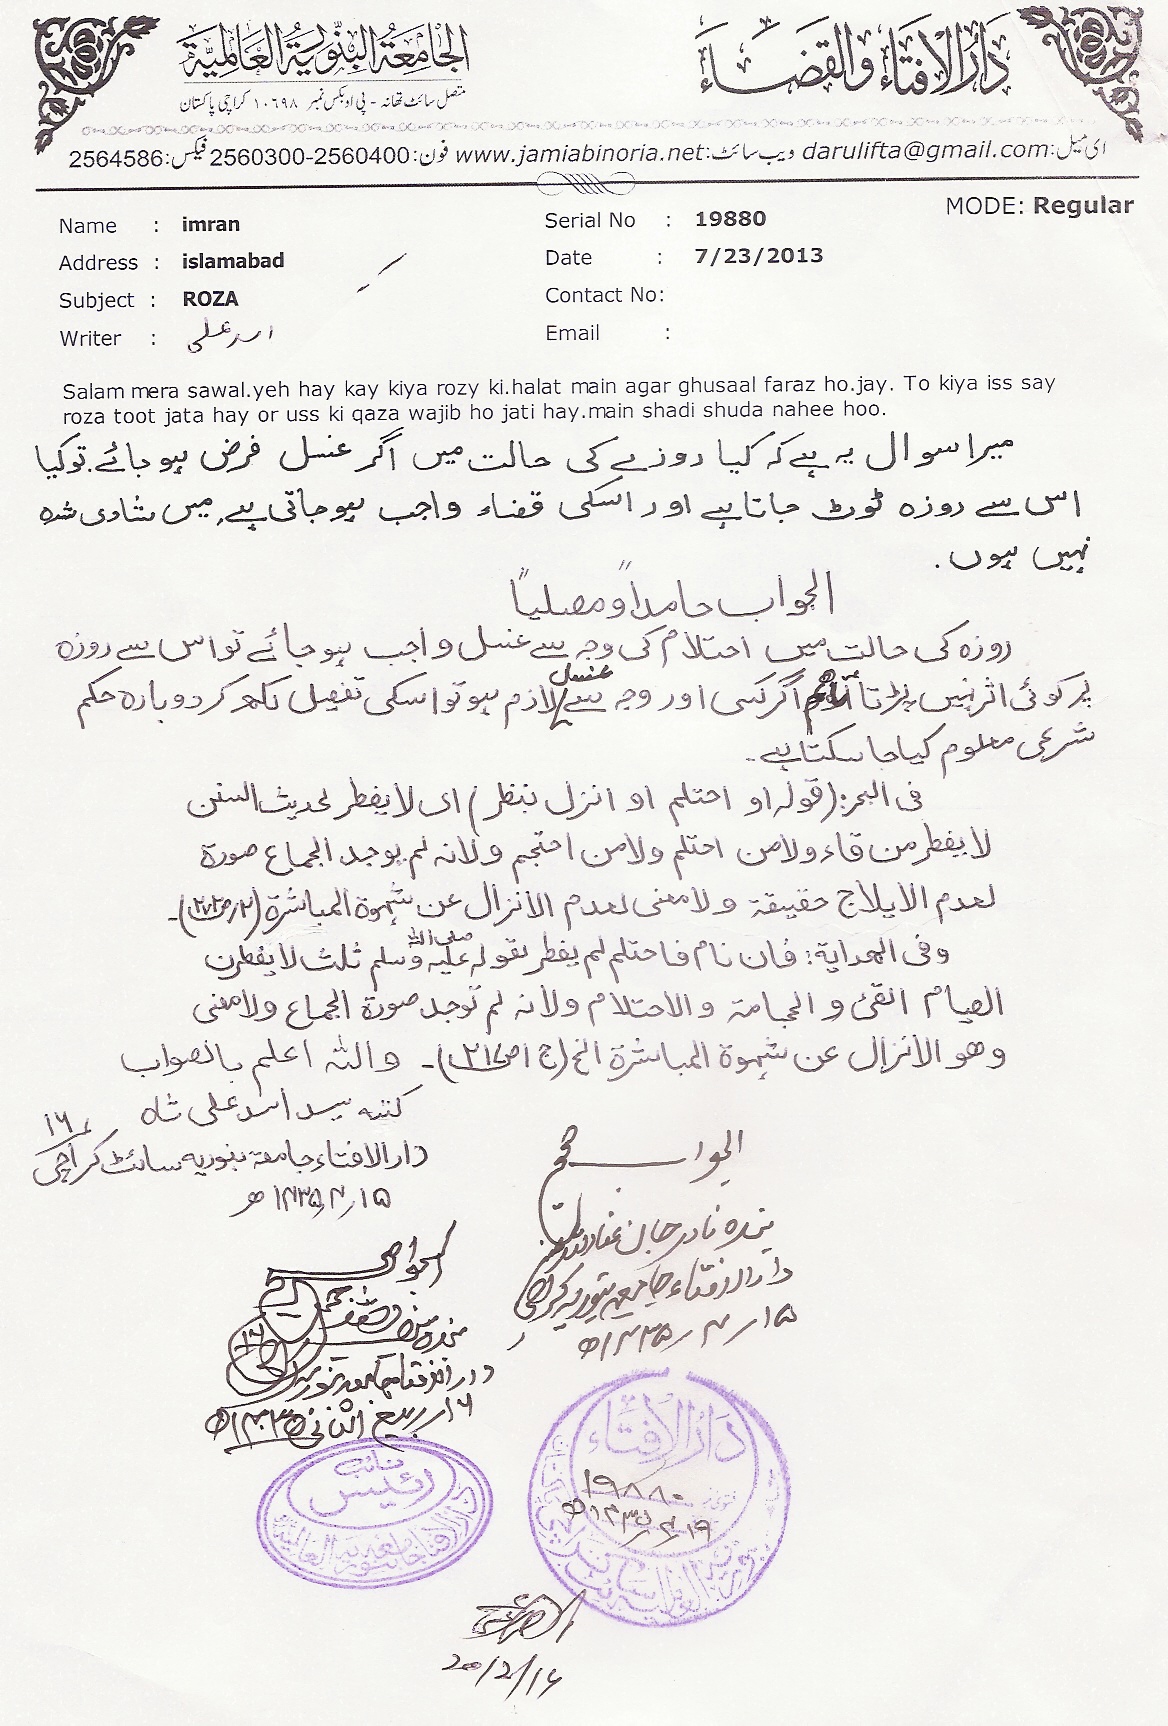 دَارُ الْإفتَاء وَالقَضَاءْ
الجَامِعَةُ البِنّورِيّةُ العَالمِيّة
متصل سائٹ تھانہ - پی او بکس نمبر ۱۰۶۹۸ کراچی پاکستان
ای میل:darulifta@gmail.com ویب سائٹ:www.jamiabinoria.net فون:2560300-2560400 فیکس:2564586
MODE: Regular
Name : imran
Serial No : 19880
Address : islamabad
Date : 7/23/2013
Subject : ROZA
Contact No:
Writer : اسد علی
Email :
Salam mera sawal.yeh hay kay kiya rozy ki.halat main agar ghusaal faraz ho.jay. To kiya iss say
roza toot jata hay or uss ki qaza wajib ho jati hay.main shadi shuda nahee hoo.
میرا سوال یہ ہے کہ کیا روزے کی حالت میں اگر غسل فرض ہو جائے. تو کیا
اس سے روزہ ٹوٹ جاتا ہے اور اسکی قضاء واجب ہو جاتی ہے, میں شادی شدہ
نہیں ہوں.
الجواب حامداً و مصلیاً
روزہ کی حالت میں احتلام کی وجہ سے غسل واجب ہو جائے تو اس سے روزہ
پر کوئی اثر نہیں پڑتا تاہم اگر کسی اور وجہ سے غسل لازم ہو تو اسکی تفصیل لکھ کر دوبارہ حکم
شرعی معلوم کیا جا سکتا ہے۔
فی البحر: (قولہ او احتلم او انزل بنظر) ای لا یفطر لحدیث السنن
لا یفطر من قاء ولا من احتلم ولا من احتجم ولانہ لم یوجد الجماع صورة
لعدم الایلاج حقیقة ولا معنی لعدم الانزال عن شہوة المباشرة (۲/ص۲۷۲)۔
وفی الھدایة: فان نام فاحتلم لم یفطر لقولہ علیہ صلی اللہ وسلم ثلث لا یفطرن
الصیام القئ و الحجامة والاحتلام ولانہ لم توجد صورة الجماع ولا معنی
وھو الانزال عن شہوة المباشرة الخ (ج۱ ص۲۱۷)۔ واللہ اعلم بالصواب
کتبہ سید اسد علی شاہ
دار الافتاء جامعہ بنوریہ سائٹ کراچی ۱۶
۱۵ ر ۴ ر ۱۴۳۵ ھ
الجواب صحیح
بندہ نادر جان
دار الافتاء جامعہ بنوریہ کراچی
۱۵ ر ۴ ر ۱۴۳۵ھ
الجواب صحیح
دار الافتاء جامعہ بنوریہ
۱۶ ربیع الثانی ۱۴۳۵ھ
دَارُ الْافتَاء
۱۹۸۸۰
۱۹ ر ۴ ر ۱۴۳۵ھ
نائب
رئیس
دار الافتاء جامعہ بنوریہ العالمیة
20/2/14